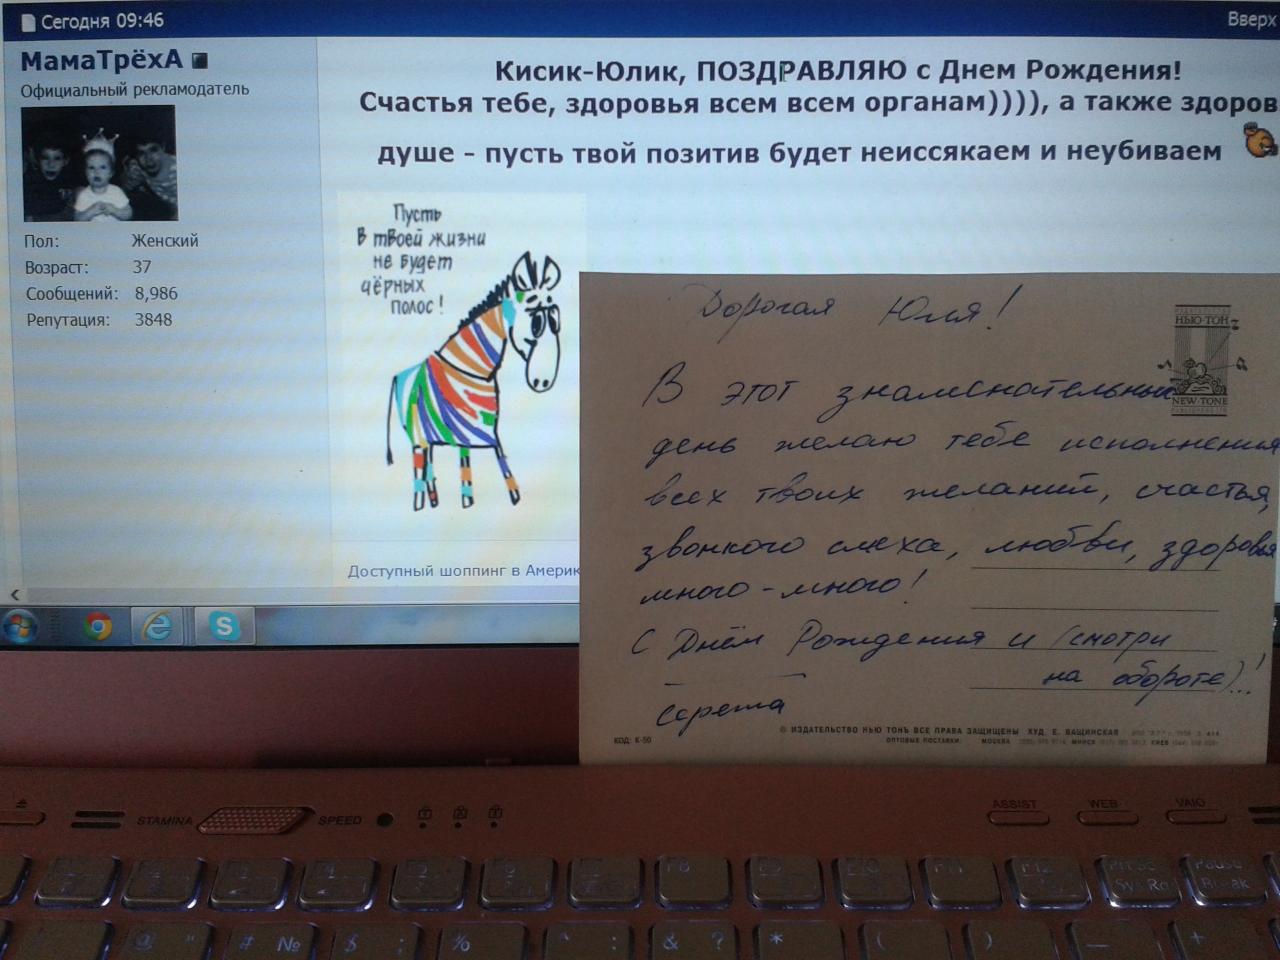 Сегодня 09:46
Вверх
МамаТрёхА
Официальный рекламодатель
Пол: Женский
Возраст: 37
Сообщений: 8,986
Репутация: 3848
Кисик-Юлик, ПОЗДРАВЛЯЮ с Днем Рождения!
Счастья тебе, здоровья всем всем органам)))), а также здоров
душе - пусть твой позитив будет неиссякаем и неубиваем
Пусть
в твоей жизни
не будет
чёрных
полос!
Доступный шоппинг в Америк
Дорогая Юля!
В этот знаменательный
день желаю тебе исполнения
всех твоих желаний, счастья,
звонкого смеха, любви, здоровья
много-много!
С Днём Рождения и (смотри
на обороте)...!
Сережа
НЬЮ-ТОН
NEW-TONE
КОД: К-50
© ИЗДАТЕЛЬСТВО НЬЮ ТОНЪ ВСЕ ПРАВА ЗАЩИЩЕНЫ ХУД. Е. ВАЩИНСКАЯ
ОПТОВЫЕ ПОСТАВКИ: МОСКВА МИНСК КИЕВ
STAMINA SPEED
ASSIST WEB VAIO
F8 F9 F10 F11 F12 Prt Sc Sys Rq Pause Break
@ " # № $ ; % ^ : & ? * ( ) — +